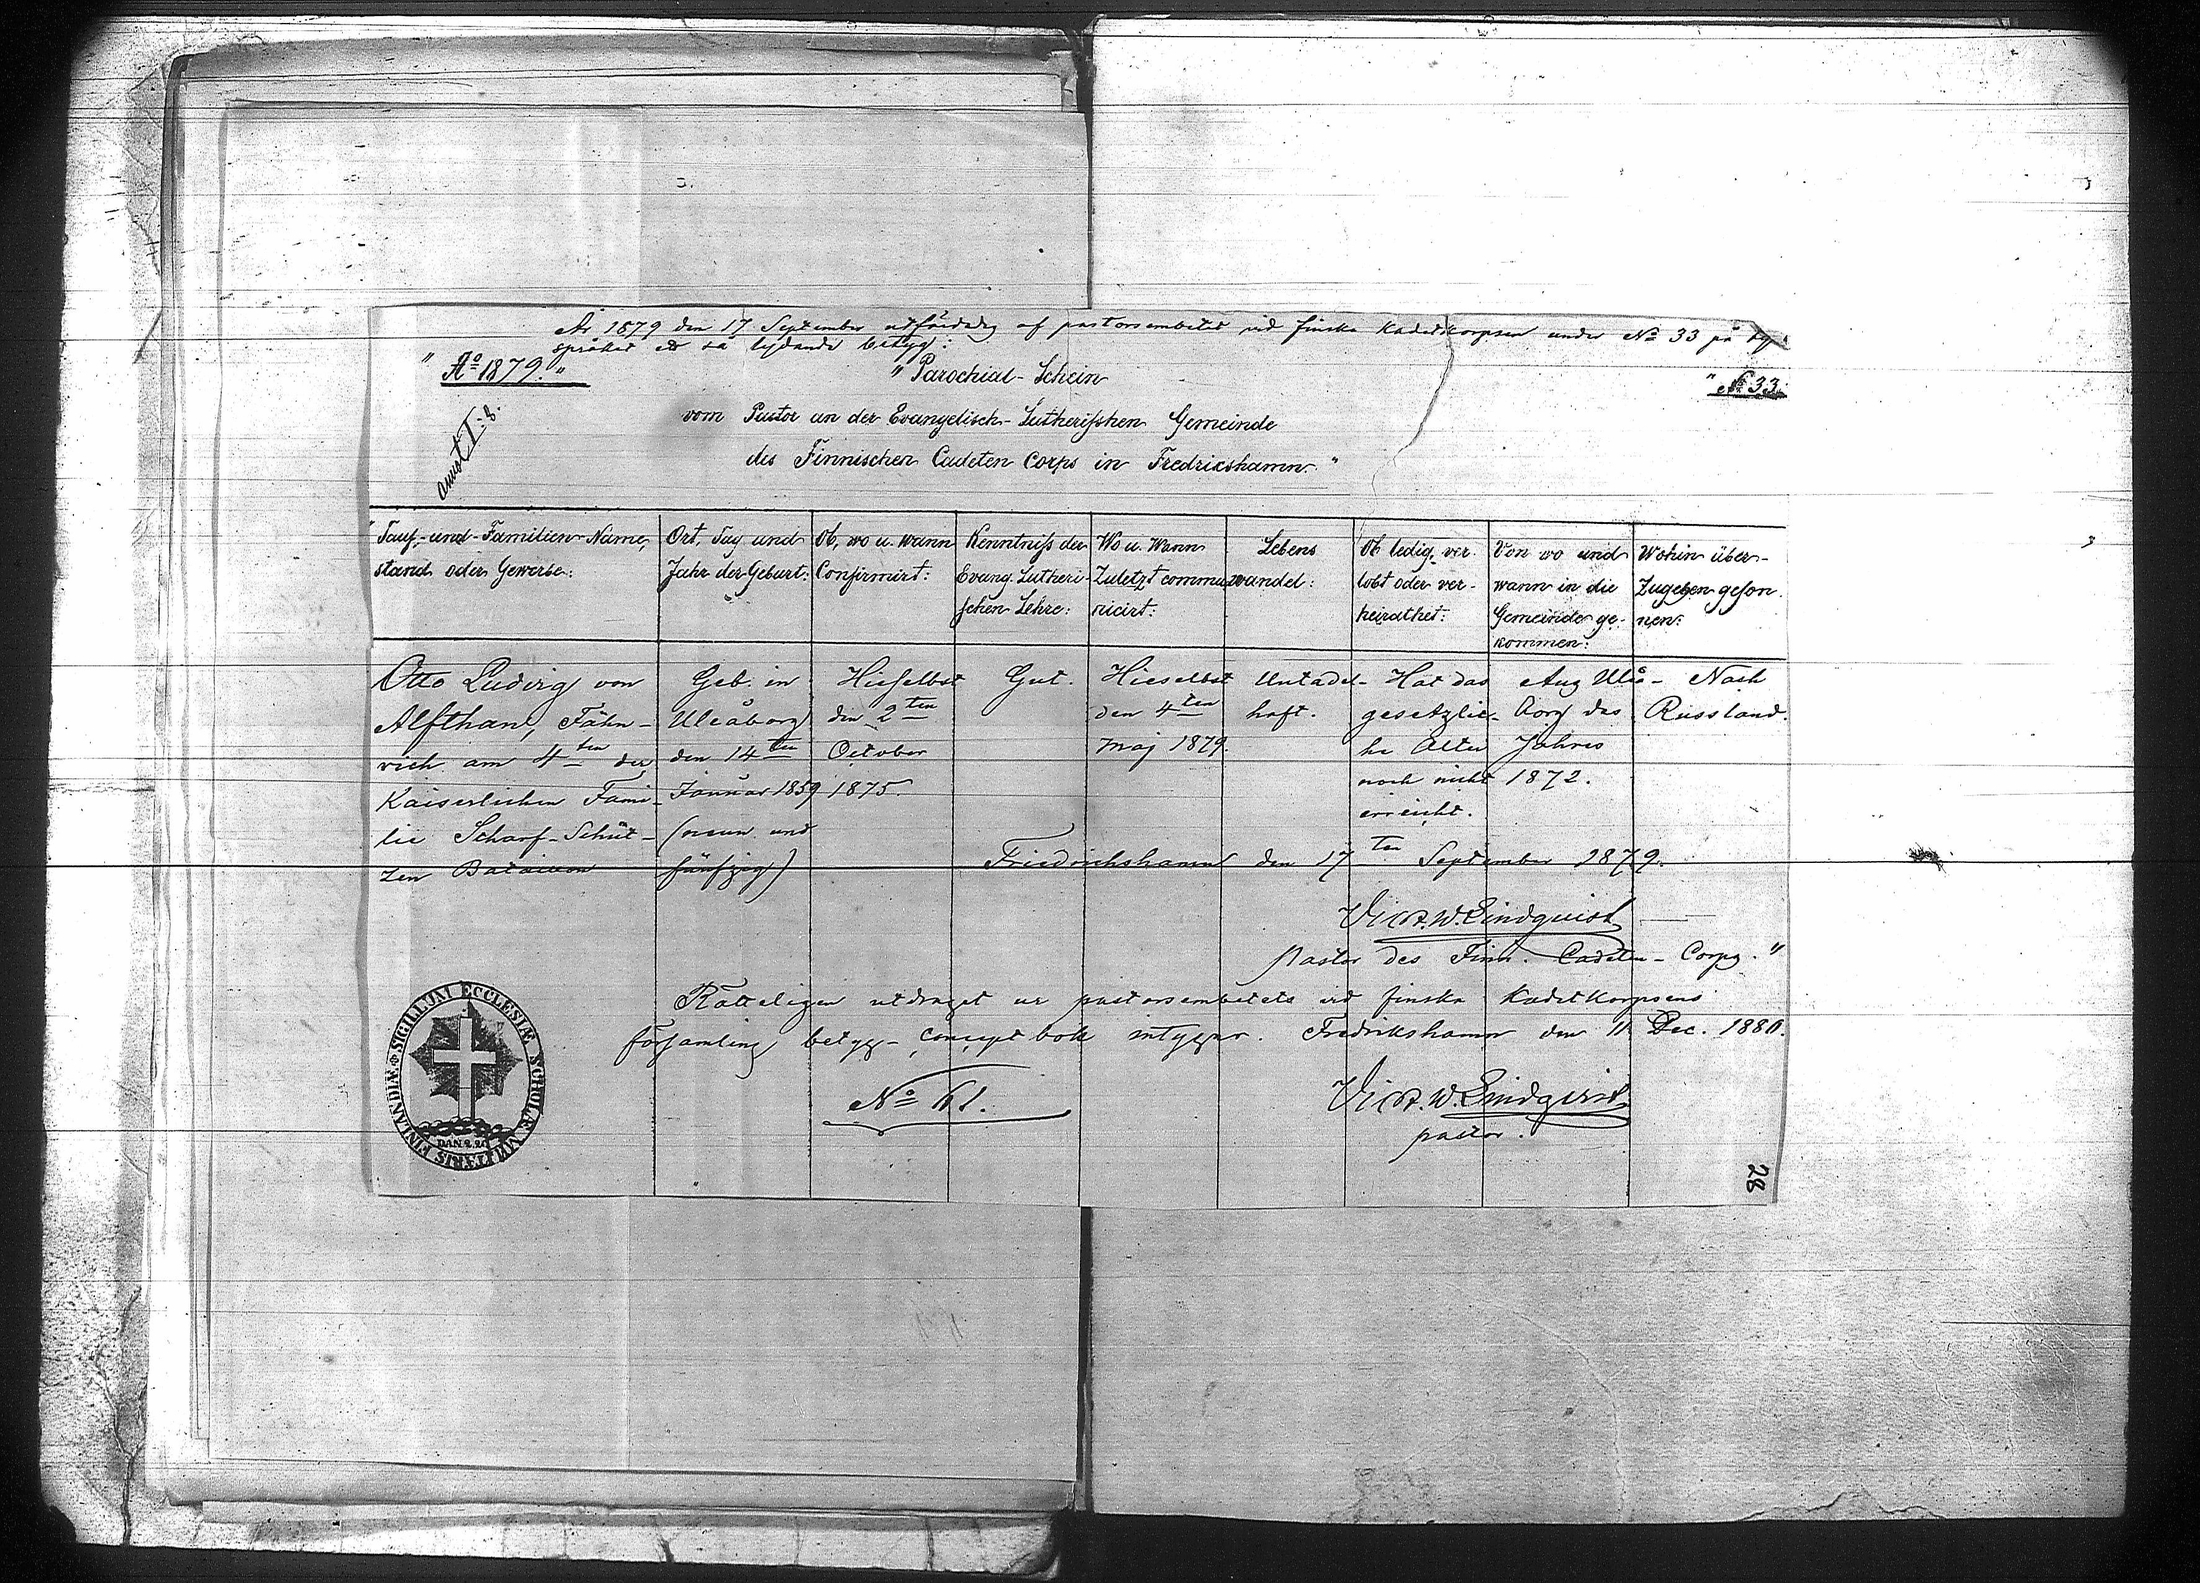 År 1879 den 17 September utfärdades af pastorsembetet vid finska Kadettkorpsen under No 33 på
språket ett så lydande betyg:
" Ao 1879. "
" Parochial-Schein
" No 33.
vom Pastor an der Evangelisch-Lutherischen Gemeinde
des Finnischen Cadeten Corps in Fredrikshamn. "
"Tauf- und Familien-Name,
stand oder Gewerbe:
Ort, Tag und
Jahr der Geburt:
Ob, wo u. wann
Confirmirt:
Kenntniss der
Evang. Lutheri-
schen Lehre:
Wo u. Wann
Zuletzt commu-
nicirt:
Lebens
wandel:
Ob ledig, ver-
lobt oder ver-
heirathet:
Von wo und
wann in die
Gemeinde ge-
kommen:
Wohin über-
Zugehen geson-
nen:
Otto Ludvig von
Alfthan, Fähn-
rich am 4ten der
Kaiserlichen Fami-
lie Scharf-Schüt-
zen Bataillon
Geb. in
Uleåborg
den 14ten
Januar 1859
(neun und
fünfzig)
Hieselbst
den 2ten
October
1875.
Gut.
Hieselbst
den 4ten
Maj 1879.
Untadel-
haft.
Hat das
gesetzli-
che Alter
noch nicht
erreicht.
Aus Uleå-
borg des
Jahres
1872.
Nach
Russland.
Friedrichshamn den 17ten September 1879.
Vict. W. Lindquist
Pastor des Finn. Cadeten-Corps. "
Rätteligen utdraget ur pastorsembetets vid finska Kadettkorpsens
församling betygs-conceptbok intygar. Fredrikshamn den 11 Dec. 1880.
No 61.
Vict. W. Lindquist
pastor.
SIGILLUM ECCLESIÆ SCHOLÆ MILITARIS FINLANDIÆ
28